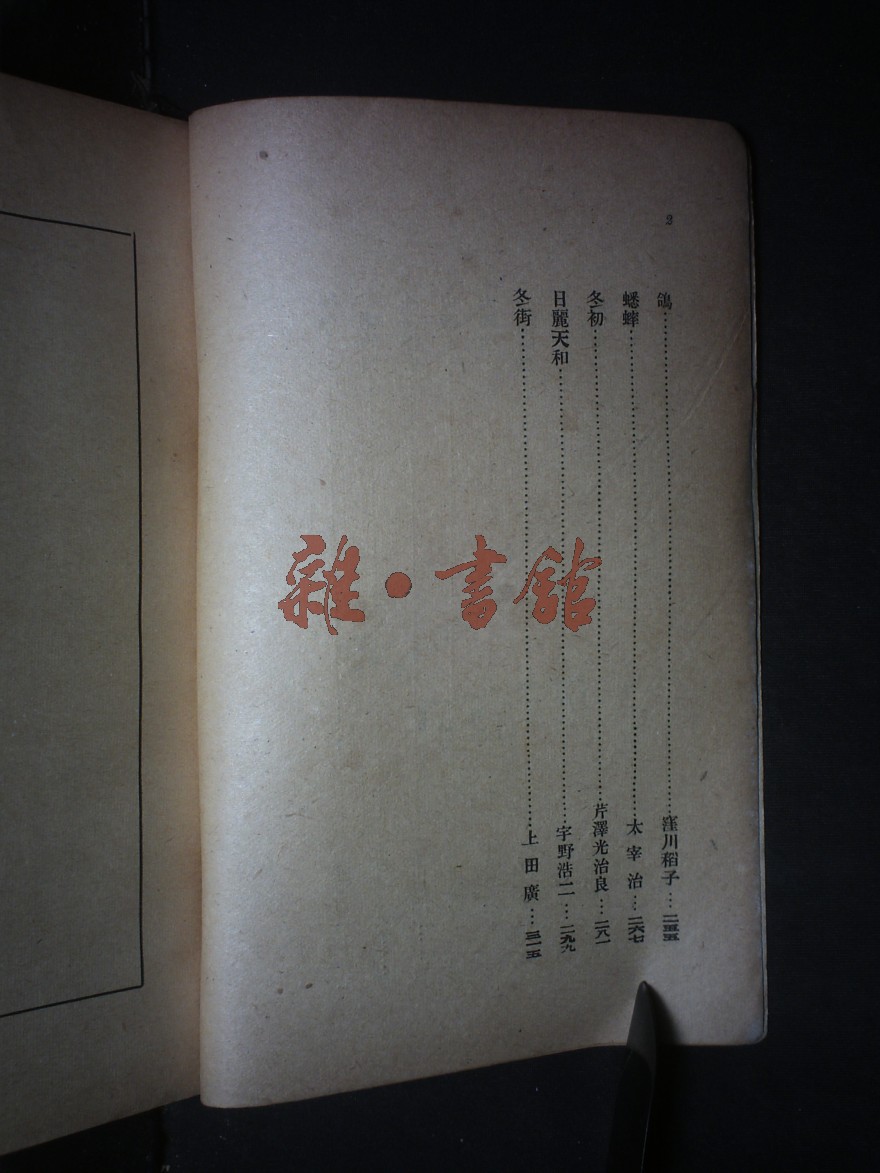 2
鴿……窪川稻子…二五五
蟋蟀……太宰治…二六七
冬初……芹澤光治良…二八一
日麗天和……宇野浩二…二九九
冬街……上田廣…三一五
雜·書館